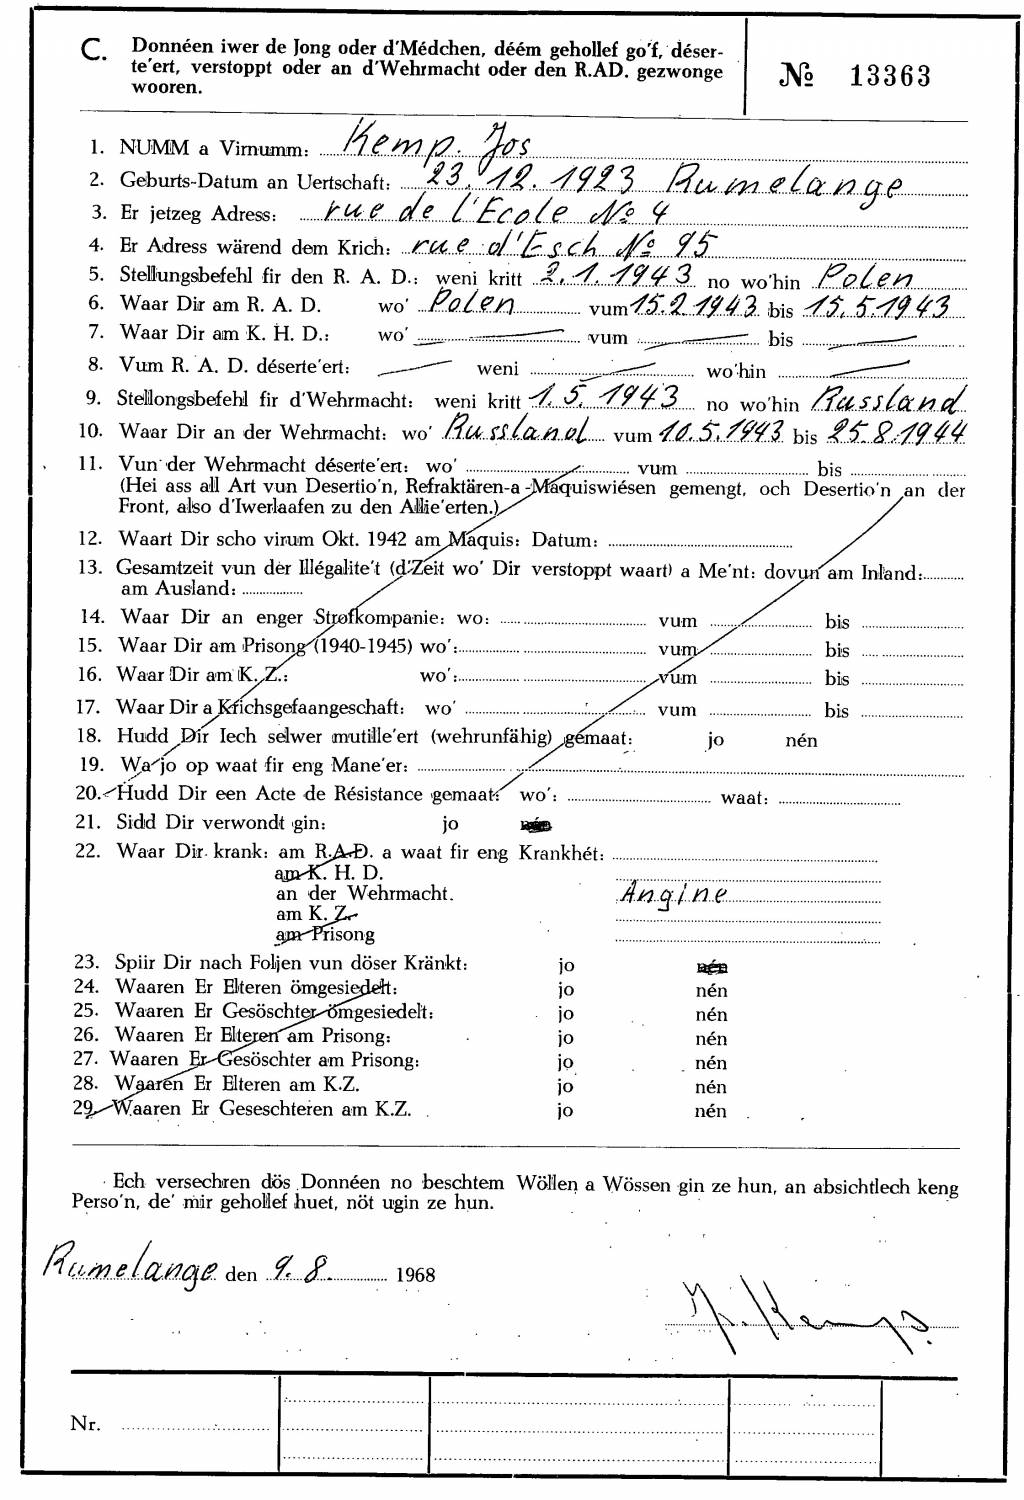 C. Donnéen iwer de Jong oder d'Médchen, déém gehollef go'f, déser-
te'ert, verstoppt oder an d'Wehrmacht oder den R.AD. gezwonge
wooren.
№ 13363
1. NUMM a Virnumm: Kemp. Jos
2. Geburts-Datum an Uertschaft: 23. 12. 1923 Rumelange
3. Er jetzeg Adress: rue de l'Ecole № 4
4. Er Adress wärend dem Krich: rue d'Esch № 95
5. Stellungsbefehl fir den R. A. D.: weni kritt 2. 1. 1943 no wo'hin Polen
6. Waar Dir am R. A. D. wo' Polen vum 15.2.1943 bis 15.5.1943
7. Waar Dir am K. H. D.: wo' vum bis
8. Vum R. A. D. déserte'ert: weni wo'hin
9. Stellongsbefehl fir d'Wehrmacht: weni kritt 1. 5. 1943 no wo'hin Russland
10. Waar Dir an der Wehrmacht: wo' Russland vum 10.5.1943 bis 25.8.1944
11. Vun der Wehrmacht déserte'ert: wo' vum bis
(Hei ass all Art vun Desertio'n, Refraktären-a -Maquiswiésen gemengt, och Desertio'n an der
Front, also d'Iwerlaafen zu den Allie'erten.)
12. Waart Dir scho virum Okt. 1942 am Maquis: Datum:
13. Gesamtzeit vun der Illégalite't (d'Zeit wo' Dir verstoppt waart) a Me'nt: dovun am Inland:
am Ausland:
14. Waar Dir an enger Strofkompanie: wo: vum bis
15. Waar Dir am Prisong (1940-1945) wo': vum bis
16. Waar Dir am K. Z.: wo': vum bis
17. Waar Dir a Krichsgefaangeschaft: wo' vum bis
18. Hudd Dir Iech selwer mutille'ert (wehrunfähig) gemaat: jo nén
19. Wa jo op waat fir eng Mane'er:
20. Hudd Dir een Acte de Résistance gemaat: wo': waat:
21. Sidd Dir verwondt gin: jo nén
22. Waar Dir krank: am R.A.D. a waat fir eng Krankhét:
am K. H. D.
an der Wehrmacht. Angine
am K. Z.
am Prisong
23. Spiir Dir nach Foljen vun döser Kränkt: jo nén
24. Waaren Er Elteren ömgesiedelt: jo nén
25. Waaren Er Gesöschter ömgesiedelt: jo nén
26. Waaren Er Elteren am Prisong: jo nén
27. Waaren Er Gesöschter am Prisong: jo nén
28. Waaren Er Elteren am K.Z. jo nén
29. Waaren Er Geseschteren am K.Z. jo nén
Ech versechren dös Donnéen no beschtem Wöllen a Wössen gin ze hun, an absichtlech keng
Perso'n, de' mir gehollef huet, nöt ugin ze hun.
Rumelange den 9. 8. 1968
J. Kemp.
Nr.